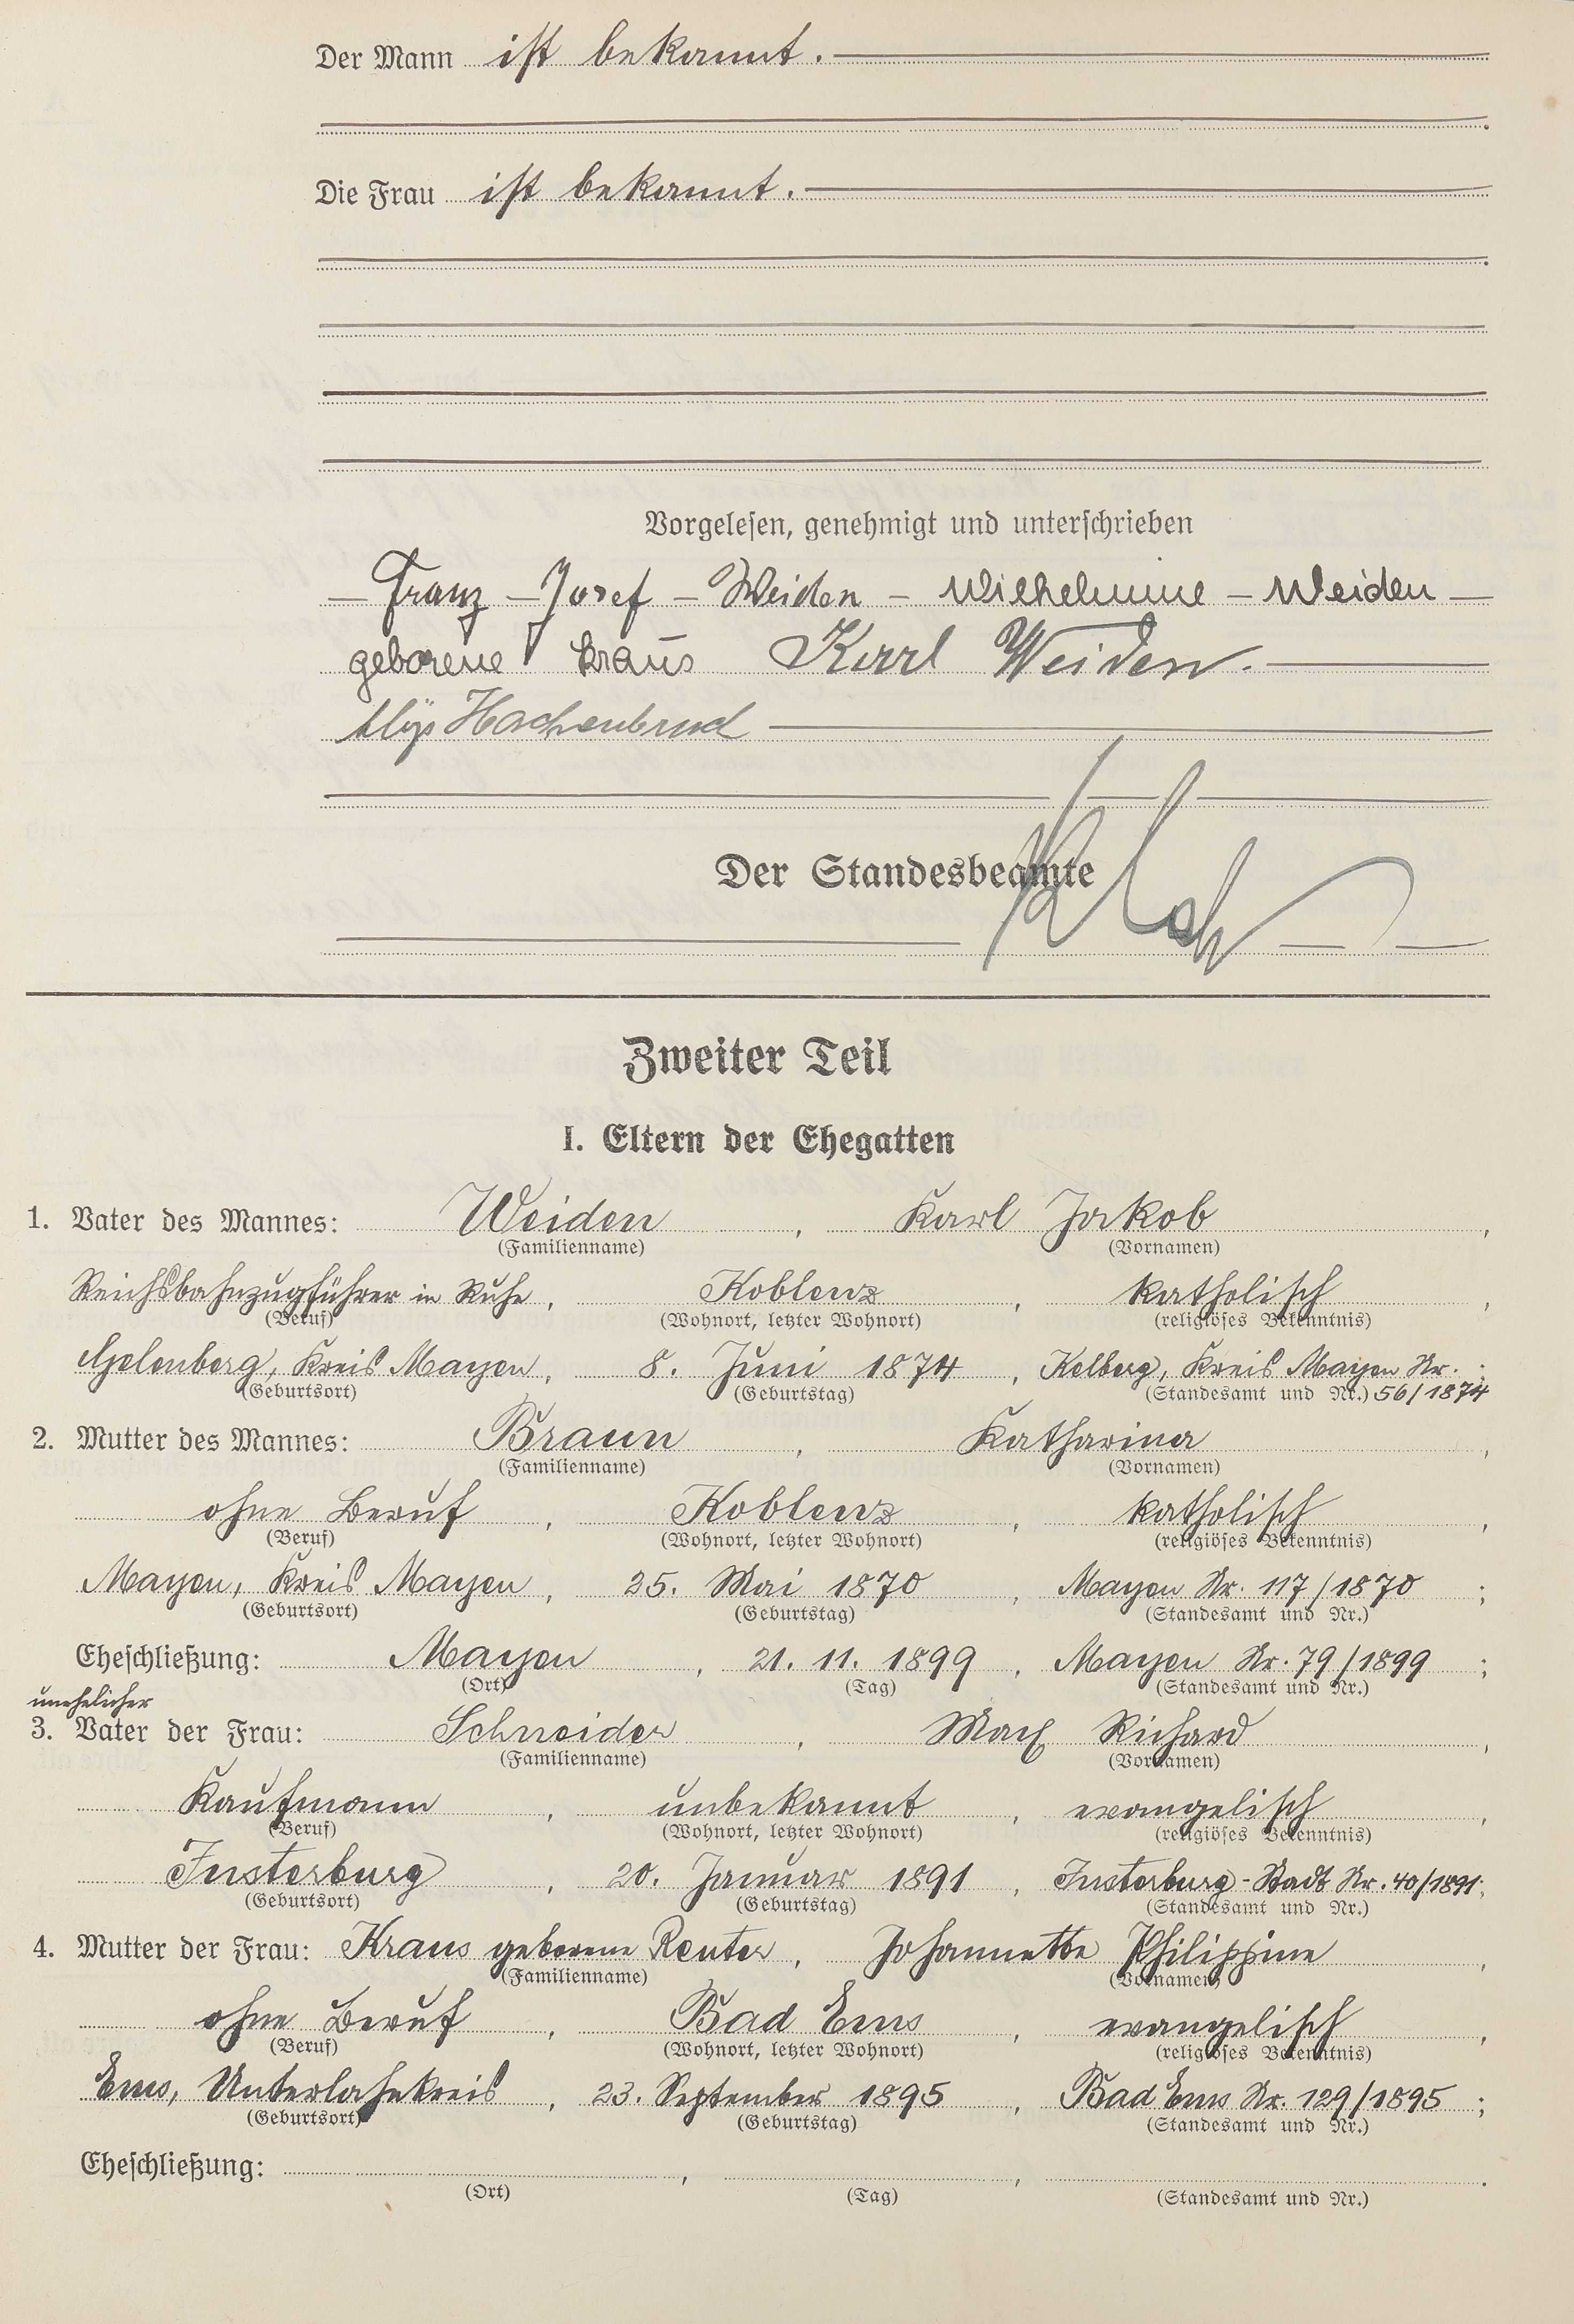 Der Mann ist bekannt.
Die Frau ist bekannt.
Vorgelesen, genehmigt und unterschrieben
– Franz – Josef – Weiden – Wilhelmine – Weiden –
geborene Kraus Karl Weiden.
Der Standesbeamte
Zweiter Teil
I. Eltern der Ehegatten
1. Vater des Mannes: Weiden, Karl Jakob,
(Familienname) (Vornamen)
Reichsbahnzugführer in Ruhe, Koblenz, katholisch,
(Beruf) (Wohnort, letzter Wohnort) (religiöses Bekenntnis)
Gelenberg, Kreis Mayen, 8. Juni 1874, Kelberg, Kreis Mayen Nr. ;
(Geburtsort) (Geburtstag) (Standesamt und Nr.) 56/1874
2. Mutter des Mannes: Braun, Katharina,
(Familienname) (Vornamen)
ohne Beruf, Koblenz, katholisch,
(Beruf) (Wohnort, letzter Wohnort) (religiöses Bekenntnis)
Mayen, Kreis Mayen, 25. Mai 1870, Mayen Nr. 117/1870;
(Geburtsort) (Geburtstag) (Standesamt und Nr.)
Eheschließung: Mayen, 21. 11. 1899, Mayen Nr. 79/1899;
(Ort) (Tag) (Standesamt und Nr.)
unehelicher
3. Vater der Frau: Schneider, Max Richard,
(Familienname) (Vornamen)
Kaufmann, unbekannt, evangelisch,
(Beruf) (Wohnort, letzter Wohnort) (religiöses Bekenntnis)
Insterburg, 20. Januar 1891, Insterburg-Stadt Nr. 40/1891;
(Geburtsort) (Geburtstag) (Standesamt und Nr.)
4. Mutter der Frau: Kraus geborene Reuter, Johannette Philippine,
(Familienname) (Vornamen)
ohne Beruf, Bad Ems, evangelisch,
(Beruf) (Wohnort, letzter Wohnort) (religiöses Bekenntnis)
Ems, Unterlahnkreis, 23. September 1895, Bad Ems Nr. 129/1895;
(Geburtsort) (Geburtstag) (Standesamt und Nr.)
Eheschließung: , , .
(Ort) (Tag) (Standesamt und Nr.)